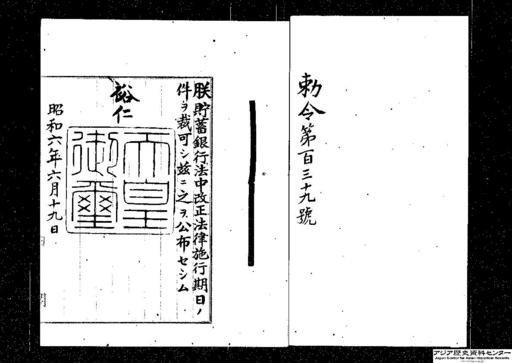 勅令第百三十九號
朕貯蓄銀行法中改正法律施行期日ノ
件ヲ裁可シ玆ニ之ヲ公布セシム
裕仁
天皇御璽
昭和六年六月十九日
アジア歴史資料センター
Japan Center for Asian Historical Records